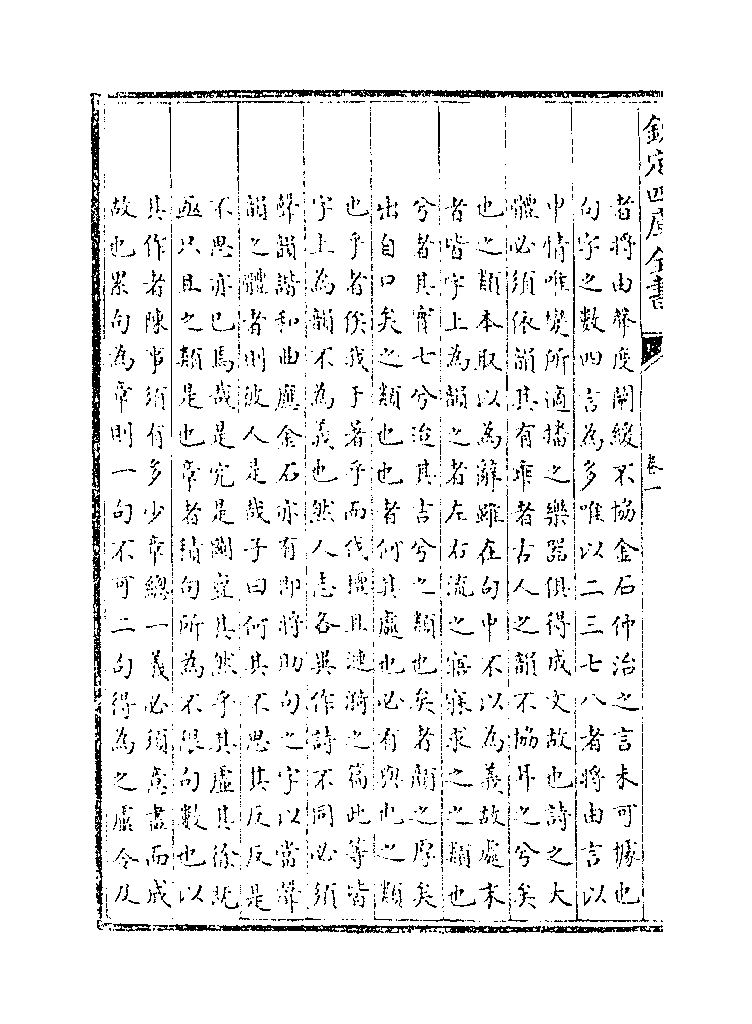 欽定四庫全書
卷一
者將由聲度闡緩不協金石仲治之言未可據也
句字之數四言為多唯以二三七八者將由言以
申情唯變所適播之樂器俱得成文故也詩之大
體必須依韻其有乖者古人之韻不協耳之兮矣
也之類本取以為辭雖在句中不以為義故處末
者皆字上為韻之者左右流之寤寐求之之類也
兮者其實七兮迨其吉兮之類也矣者顏之厚矣
出自口矣之類也也者何其處也必有與也之類
也乎者俟我于著乎而伐檀且漣漪之篇此等皆
字上為韻不為義也然人志各異作詩不同必須
聲韻諧和曲應金石亦有即將助句之字以當聲
韻之體者則彼人是哉子曰何其不思其反反是
不思亦已焉哉是究是圖亶其然乎其虛其徐既
亟只且之類是也章者積句所為不限句數也以
其作者陳事須有多少章總一義必須意盡而成
故也累句為章則一句不可二句得為之盧令及